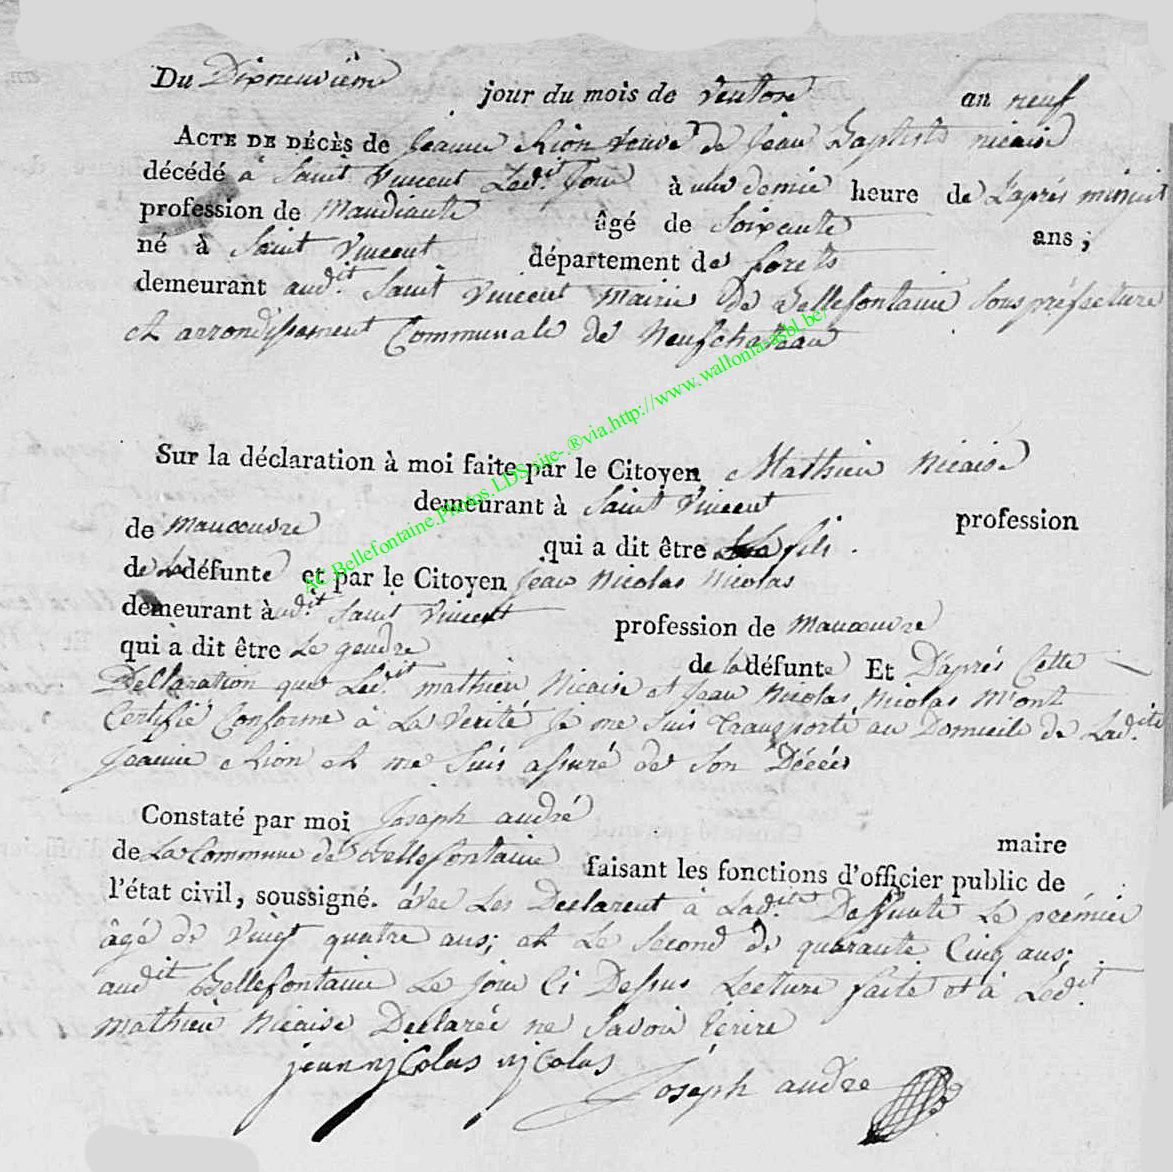 Du Dixneuvième jour du mois de Ventose an neuf
ACTE DE DÉCÈS de Jeanne Lion veuve de Jean Baptiste nicaise
décédé à Saint Vincent Led.it Jour à une demie heure de L'aprés minuit
profession de Mandiante âgé de Soixante ans ;
né à Saint Vincent département des forets
demeurant aud.it Saint Vincent Mairie de Bellefontaine Souspréfecture
et arrondissement Communale de Neufchateau
Sur la déclaration à moi faite par le Citoyen Mathieu Nicaise
demeurant à Saint Vincent profession
de manœuvre qui a dit être fils .
de la défunte et par le Citoyen Jean Nicolas Nicolas
demeurant à aud.it Saint Vincent profession de manœuvre
qui à dit être Le gendre de la défunte Et D'aprés Cette
Déclaration que Led.it mathieu Nicaise et Jean Nicolas Nicolas M'ont
Certifié Conforme à La Verité Je me Suis transporté au Domicile de Lad.ite
Jeanne Lion et me Suis assuré de Son Décés
Constaté par moi Joseph andré maire
de La Commune de Bellefontaine faisant les fonctions d'officier public de
l'état civil, soussigné. avec Les Declarent à Lad.ite Deffunte Le prémier
âgé de Vingt quatre ans; et Le Second de quarante Cinq ans;
audit Bellefontaine Le jour Ci Dessus Lecture faite et à Led.it
Mathieu Nicaise Declarée ne Savoir Ecrire
jean njcolas njcolas
Joséph andre
AC.Bellefontaine.Photos.LDS.site-.®via.http://www.wallonia-asbl.be/